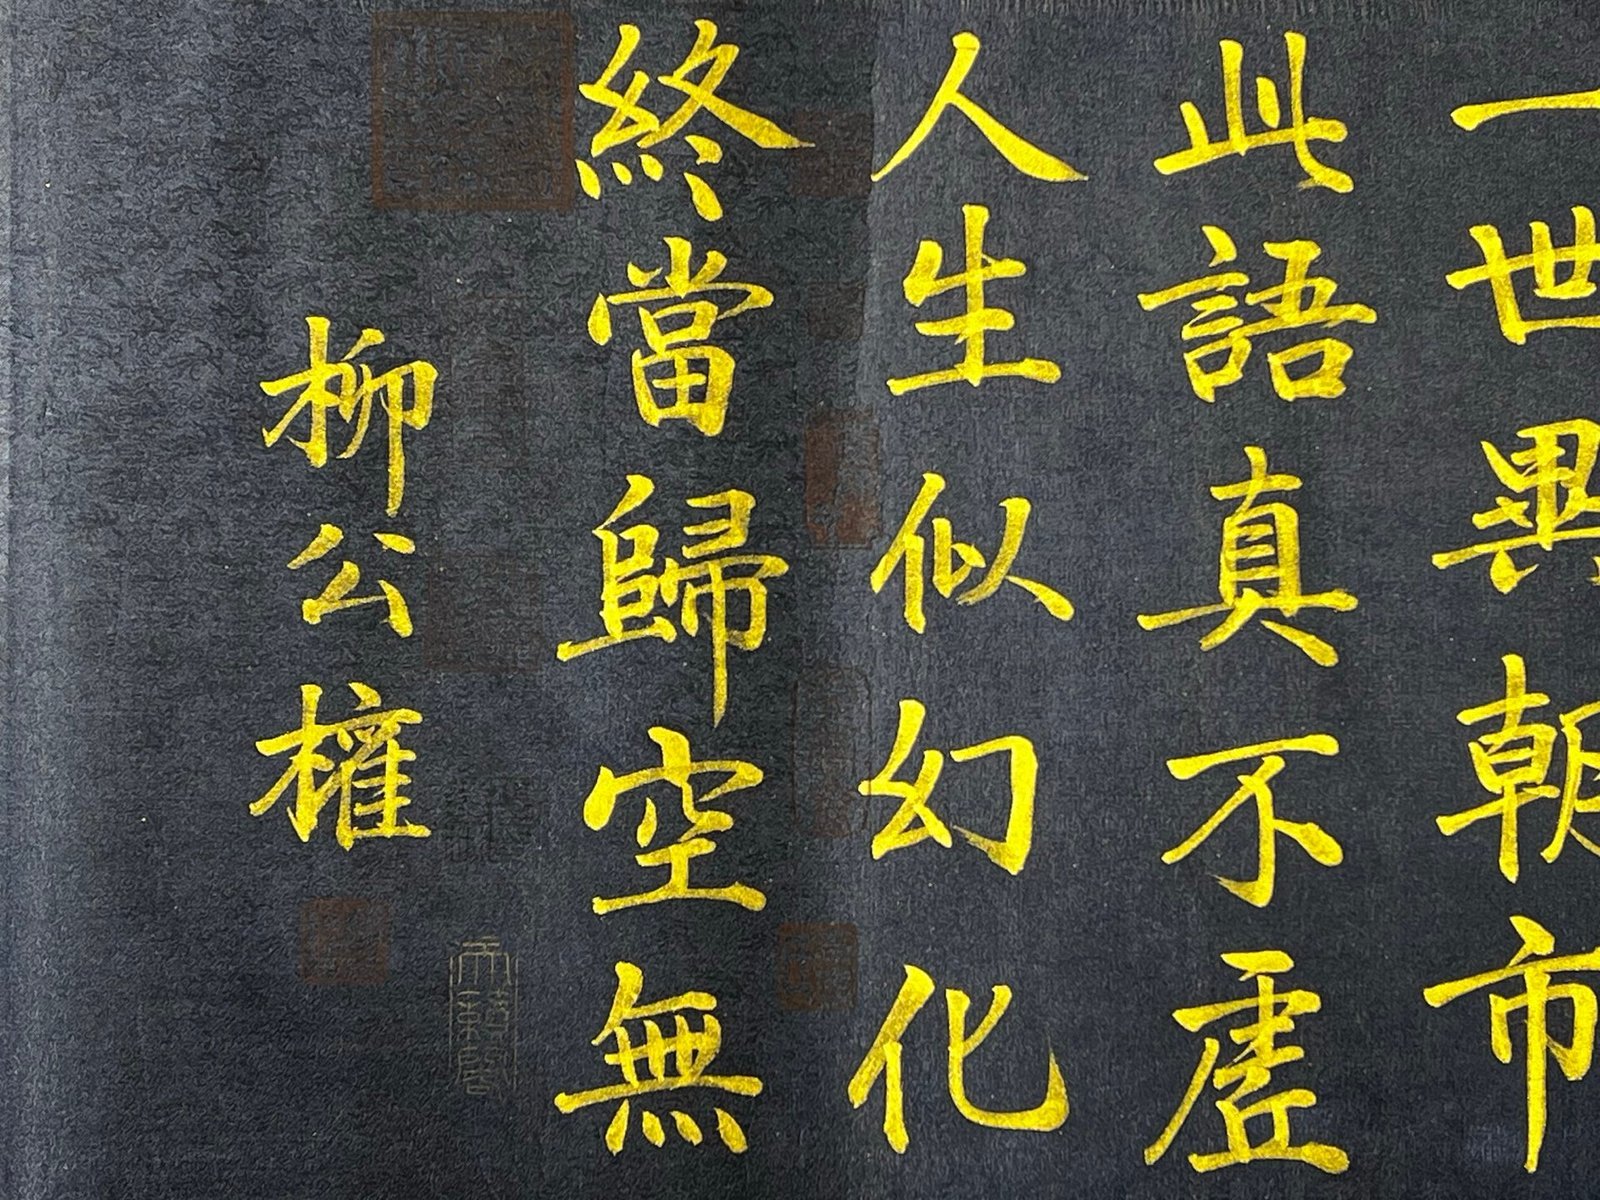 一世異朝市
此語真不虛
人生似幻化
終當歸空無
柳公權